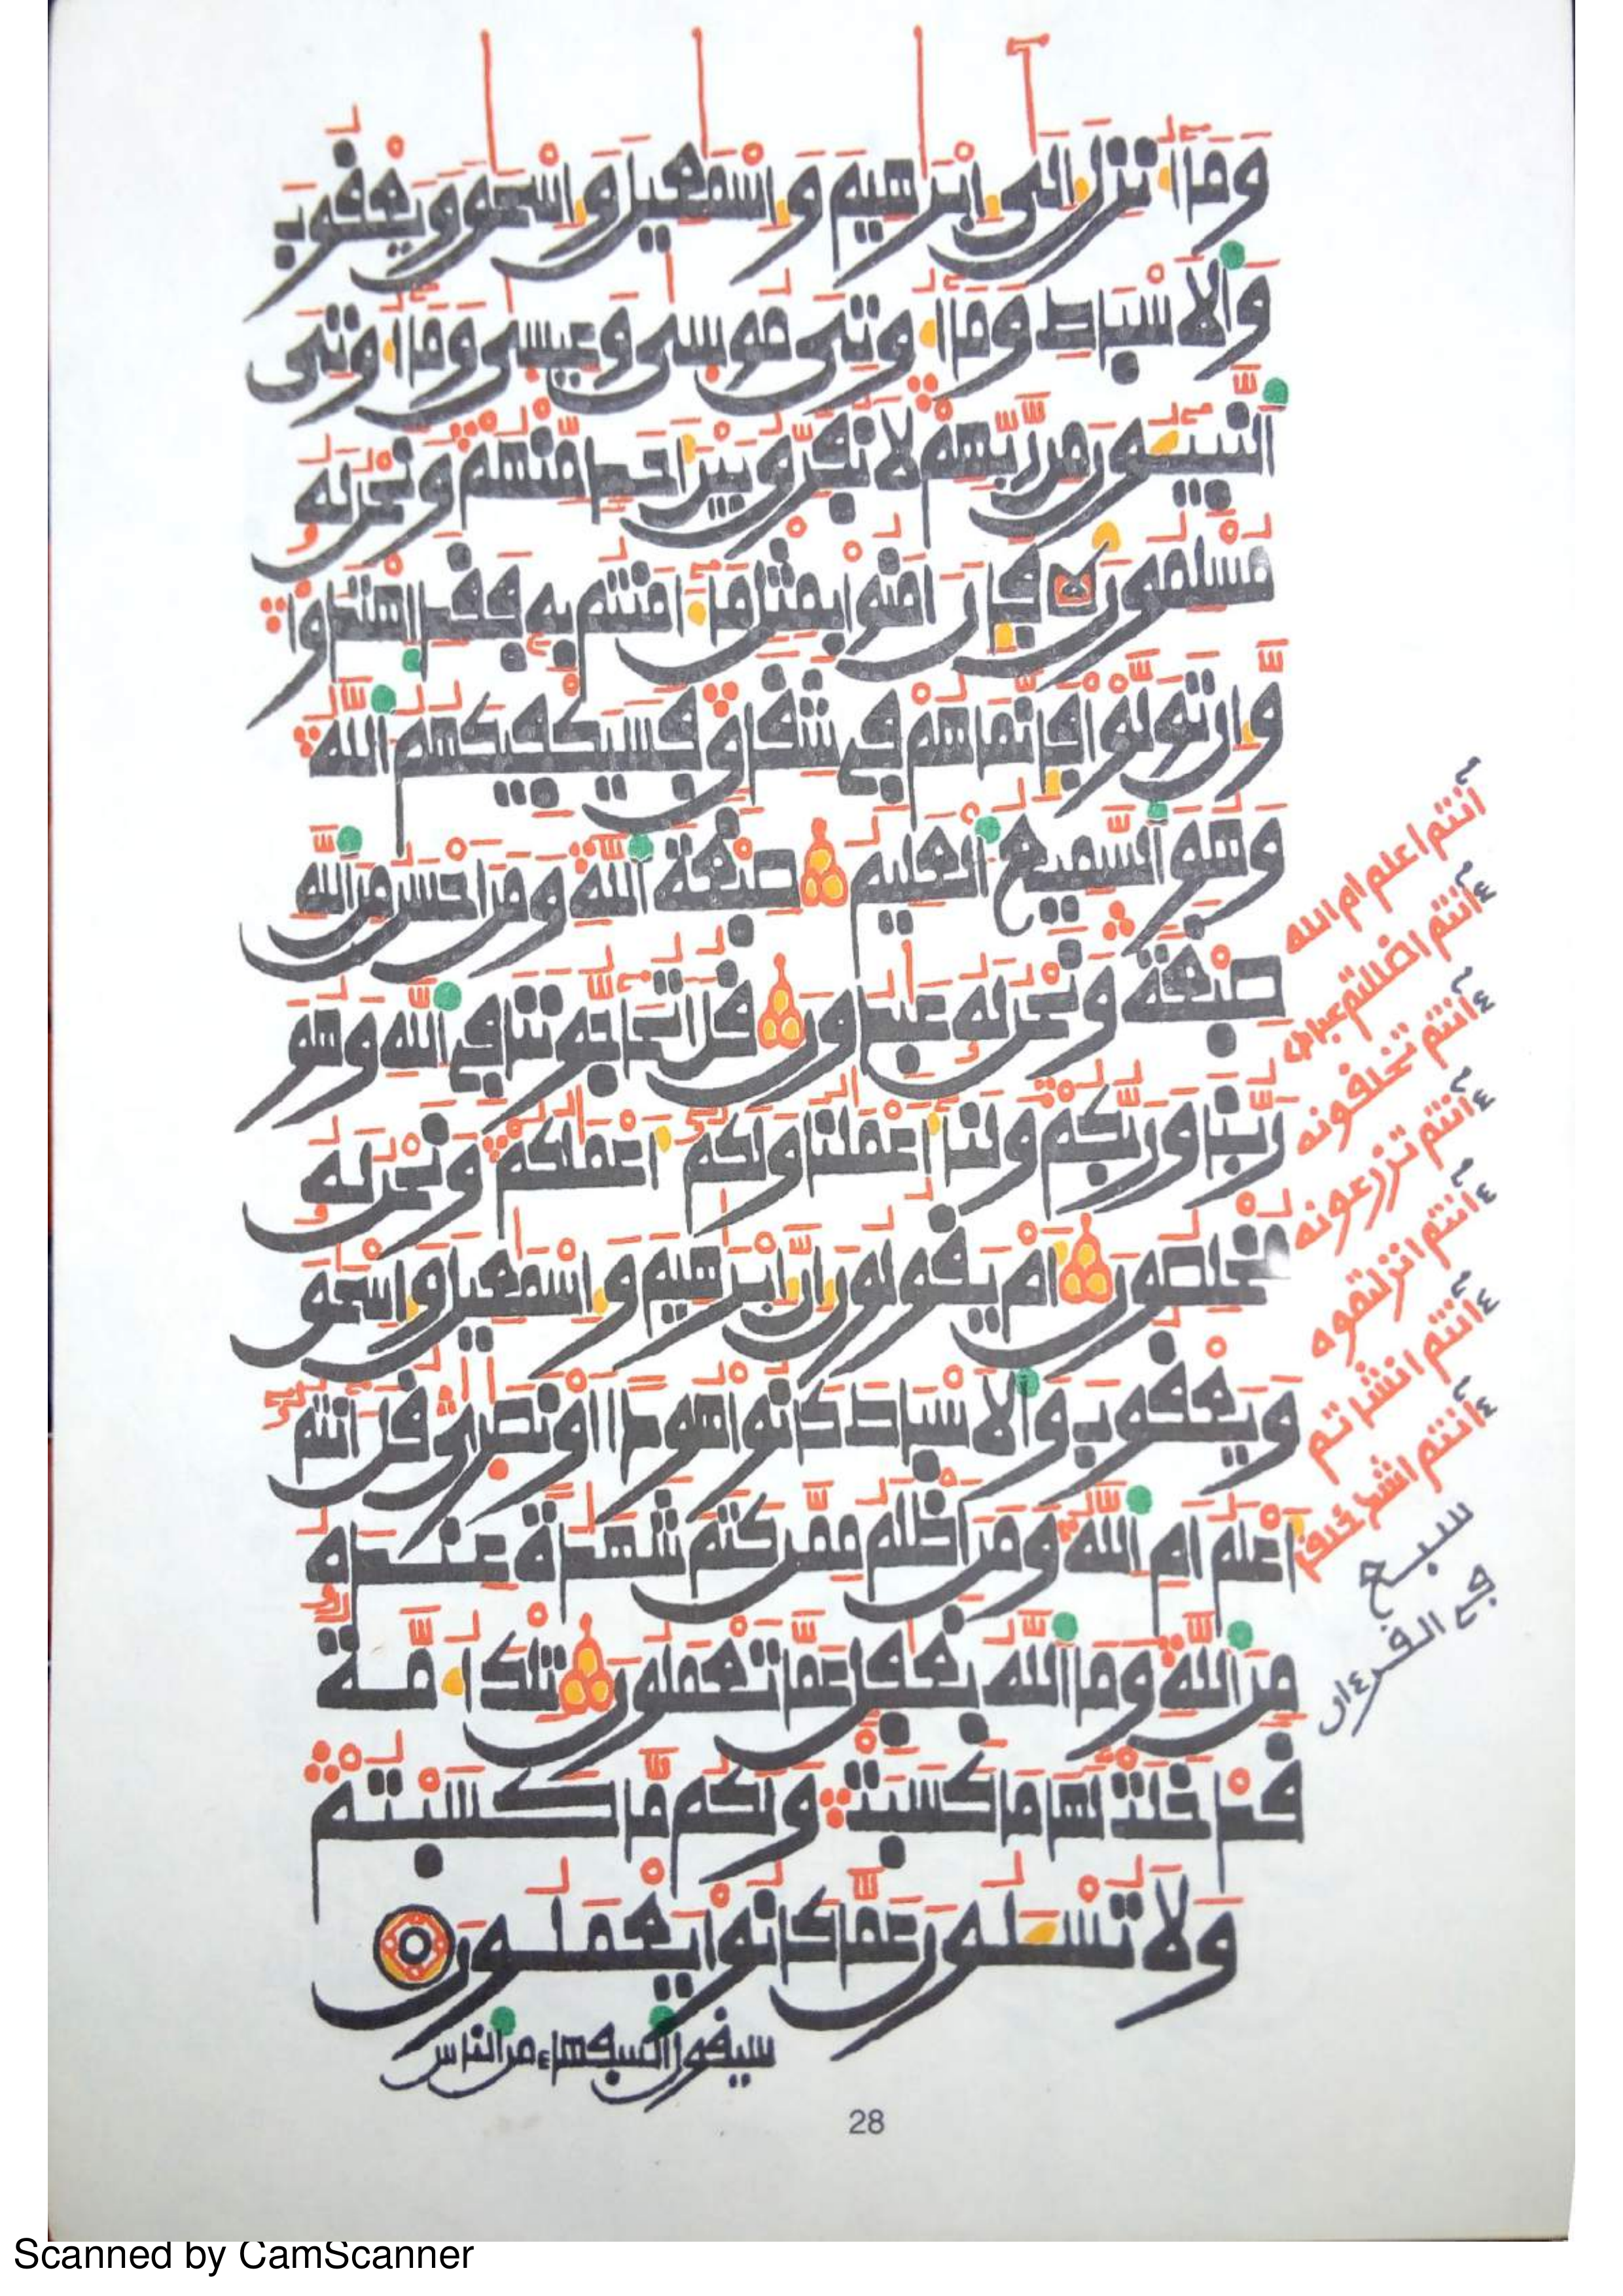 وَمَآ أُنزِلَ إِلَىٰٓ إِبْرَٰهِيمَ وَإِسْمَٰعِيلَ وَإِسْحَٰقَ وَيَعْقُوبَ
وَالَاسْبَاطِ وَمَآ أُوتِيَ مُوسَىٰ وَعِيسَىٰ وَمَآ أُوتِيَ
اَلنَّبِيٓـُٔونَ مِن رَّبِّهِمْ لَا نُفَرِّقُ بَيْنَ أَحَدٍ مِّنْهُمْ وَنَحْنُ لَهُۥ
مُسْلِمُونَ فَإِنَ اٰمَنُوا بِمِثْلِ مَآ ءَامَنتُم بِهِۦ فَقَدِ اِهْتَدَوا
وَّإِن تَوَلَّوْا فَإِنَّمَا هُمْ فِي شِقَاقٍ فَسَيَكْفِيكَهُمُ اُللَّهُ
وَهُوَ اَلسَّمِيعُ اُلْعَلِيمُ صِبْغَةَ اَللَّهِ وَمَنَ اَحْسَنُ مِنَ اَللَّهِ
صِبْغَةً وَنَحْنُ لَهُۥ عَٰبِدُونَ قُلَ اَتُحَآجُّونَنَا فِي اِللَّهِ وَهُوَ
رَبُّنَا وَرَبُّكُمْ وَلَنَآ أَعْمَٰلُنَا وَلَكُمُۥٓ أَعْمَٰلُكُمْ وَنَحْنُ لَهُۥ
مُخْلِصُونَ أَمْ يَقُولُونَ إِنَّ إِبْرَٰهِيمَ وَإِسْمَٰعِيلَ وَإِسْحَٰقَ
وَيَعْقُوبَ وَالَاسْبَاطَ كَانُوا هُودًا اَوْ نَصَٰرَىٰ قُلَ اٰنتُمُۥٓ
أَعْلَمُ أَمِ اِللَّهُ وَمَنَ اَظْلَمُ مِمَّن كَتَمَ شَهَٰدَةً عِندَهُۥ
مِنَ اَللَّهِ وَمَا اَللَّهُ بِغَٰفِلٍ عَمَّا تَعْمَلُونَ تِلْكَ أُمَّةٌ
قَدْ خَلَتْ لَهَا مَا كَسَبَتْ وَلَكُم مَّا كَسَبْتُمْ
وَلَا تُسْـَٔلُونَ عَمَّا كَانُوا يَعْمَلُونَ
سيقول السبهاء من الناس
ءانتم اعلم ام الله
ءانتم اضللتم عبادى
ءانتم تخلفونه
ءانتم تزرعونه
ءانتم انزلتموه
ءانتم انشاتم
ءانتم اشد خلفا
سبع
في الفرءان
28
Scanned by CamScanner